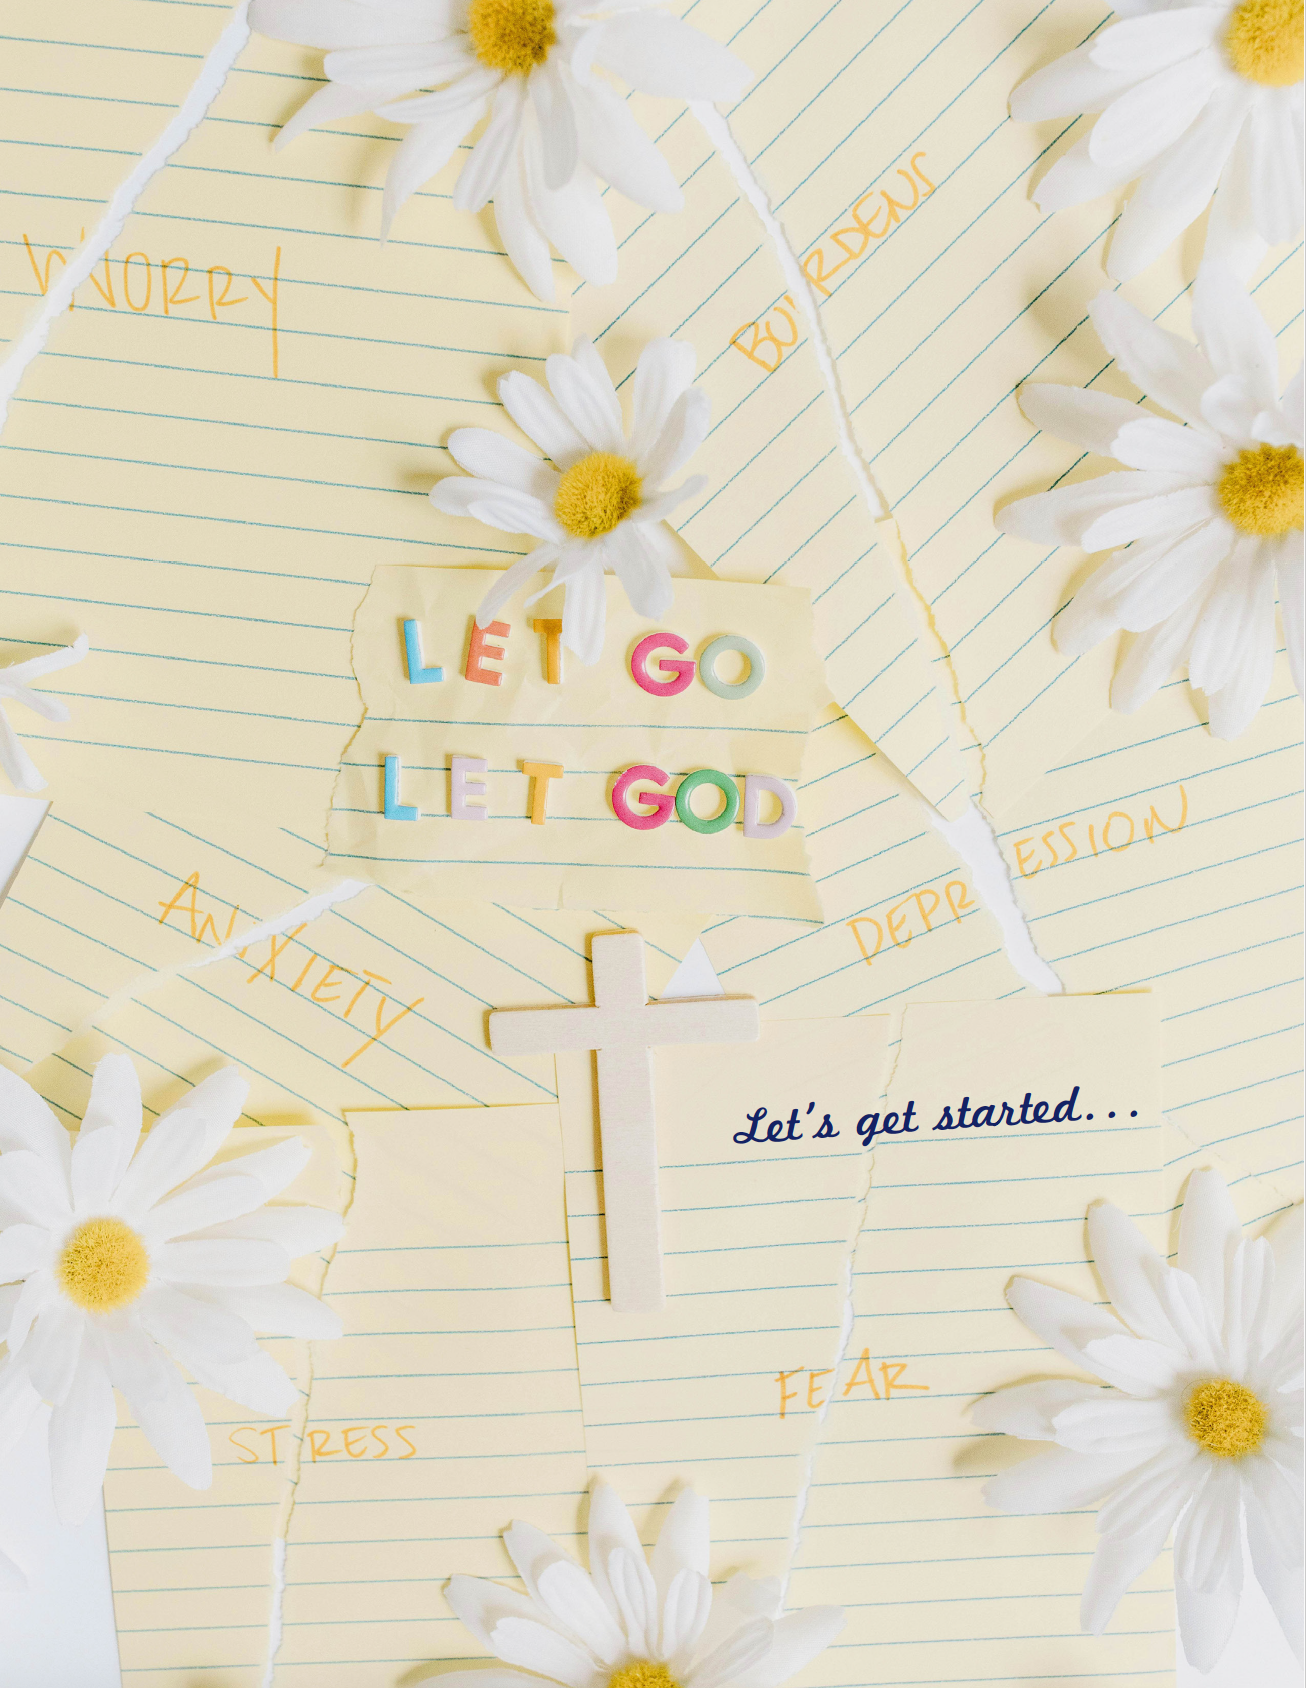 WORRY
BURDENS
LET GO
LET GOD
DEPRESSION
ANXIETY
Let's get started...
FEAR
STRESS